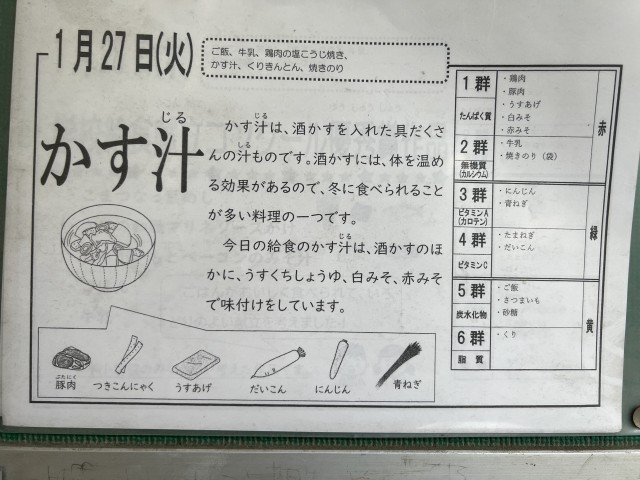 1月27日(火)
ご飯、牛乳、鶏肉の塩こうじ焼き、
かす汁、くりきんとん、焼きのり
じる
かす汁
じる
かす汁は、酒かすを入れた具だくさ
しる
んの汁ものです。酒かすには、体を温め
る効果があるので、冬に食べられること
が多い料理の一つです。
じる
今日の給食のかす汁は、酒かすのほ
かに、うすくちしょうゆ、白みそ、赤みそ
で味付けをしています。
ぶたにく
豚肉
つきこんにゃく
うすあげ
だいこん
にんじん
青ねぎ
1群
たんぱく質
・鶏肉
・豚肉
・うすあげ
・白みそ
・赤みそ
2群
無機質
(カルシウム)
・牛乳
・焼きのり(袋)
赤
3群
ビタミンA
(カロテン)
・にんじん
・青ねぎ
4群
ビタミンC
・たまねぎ
・だいこん
緑
5群
炭水化物
・ご飯
・さつまいも
・砂糖
6群
脂質
・くり
黄